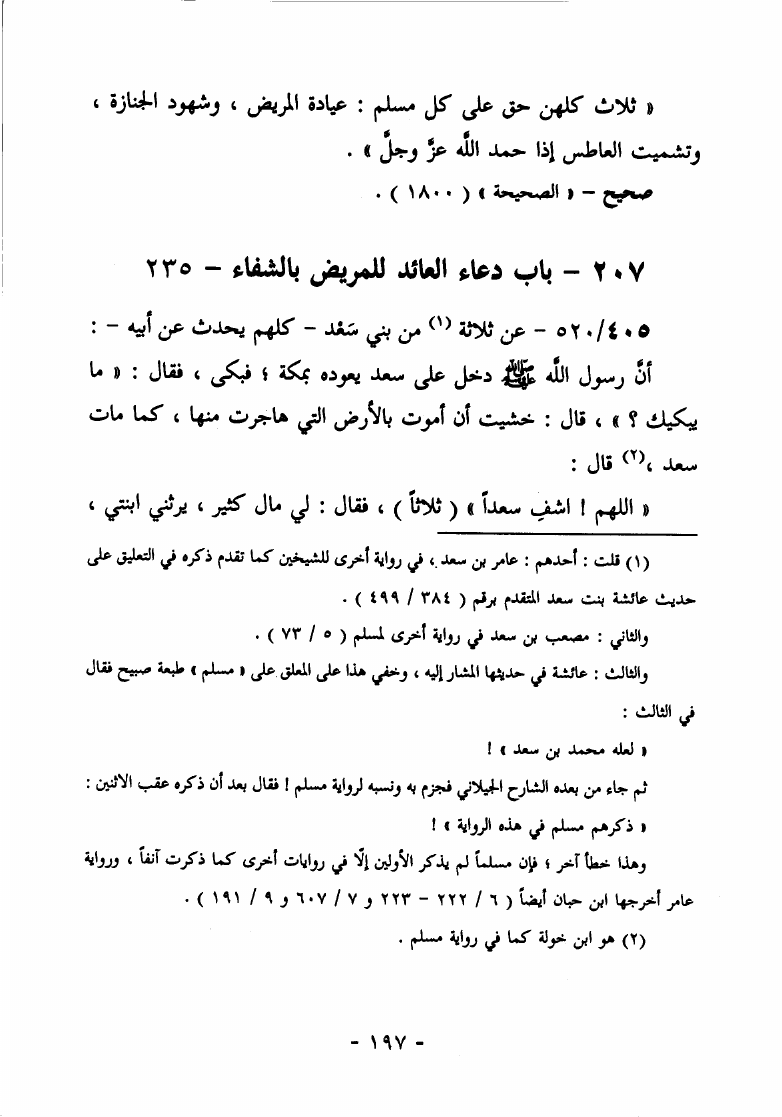 « ثلاث كلهن حق على كل مسلم : عيادة المريض ، وشهود الجنازة ،
وتشميت العاطس إذا حمد اللَّه عزَّ وجلَّ » .
صحيح – « الصحيحة » ( ١٨٠٠ ) .
٢٠٧ – باب دعاء العائد للمريض بالشفاء – ٢٣٥
٥٢٠/٤٠٥ – عن ثلاثة (١) من بني سَعْد – كلهم يحدث عن أبيه – :
أنَّ رسول اللَّه ﷺ دخل على سعد يعوده بمكة ؛ فبكى ، فقال : « ما
يبكيك ؟ » ، قال : خشيت أن أموت بالأرض التي هاجرت منها ، كما مات
سعد ،(٢) قال :
« اللهم ! اشفِ سعداً » ( ثلاثاً ) ، فقال : لي مال كثير ، يرثني ابنتي ،
(١) قلت : أحدهم : عامر بن سعد ، في رواية أخرى للشيخين كما تقدم ذكره في التعليق على
حديث عائشة بنت سعد المتقدم برقم ( ٣٨٤ / ٤٩٩ ) .
والثاني : مصعب بن سعد في رواية أخرى لمسلم ( ٥ / ٧٣ ) .
والثالث : عائشة في حديثها المشار إليه ، وخفي هذا على المعلق على « مسلم » طبعة صبيح فقال
في الثالث :
« لعله محمد بن سعد » !
ثم جاء من بعده الشارح الجيلاني فجزم به ونسبه لرواية مسلم ! فقال بعد أن ذكره عقب الاثنين :
« ذكرهم مسلم في هذه الرواية » !
وهذا خطأ آخر ؛ فإن مسلماً لم يذكر الأولين إلّا في روايات أخرى كما ذكرت آنفاً ، ورواية
عامر أخرجها ابن حبان أيضاً ( ٦ / ٢٢٢ – ٢٢٣ و ٧ / ٦٠٧ و ٩ / ١٩١ ) .
(٢) هو ابن خولة كما في رواية مسلم .
- ١٩٧ -